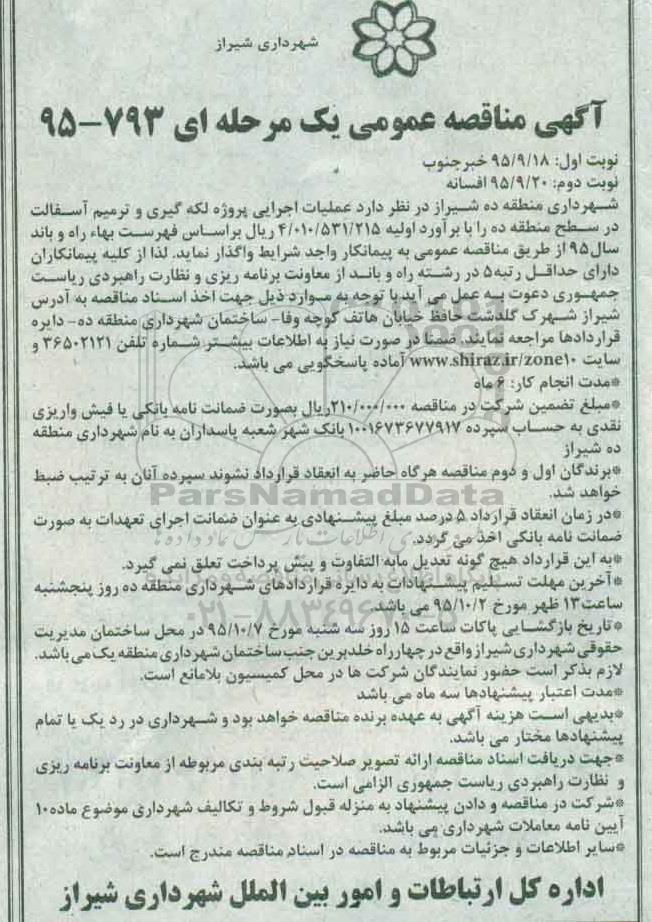 شهرداری شیراز
آگهی مناقصه عمومی یک مرحله ای ۷۹۳-۹۵
نوبت اول: ۹۵/۹/۱۸ خبرجنوب
نوبت دوم: ۹۵/۹/۲۰ افسانه
شهرداری منطقه ده شیراز در نظر دارد عملیات اجرایی پروژه لکه گیری و ترمیم آسفالت
در سطح منطقه ده را با برآورد اولیه ۴/۰۱۰/۵۳۱/۲۱۵ ریال براساس فهرست بهاء راه و باند
سال۹۵ از طریق مناقصه عمومی به پیمانکار واجد شرایط واگذار نماید. لذا از کلیه پیمانکاران
دارای حداقل رتبه۵ در رشته راه و باند از معاونت برنامه ریزی و نظارت راهبردی ریاست
جمهوری دعوت به عمل می آید با توجه به موارد ذیل جهت اخذ اسناد مناقصه به آدرس
شیراز شهرک گلدشت حافظ خیابان هاتف کوچه وفا- ساختمان شهرداری منطقه ده- دایره
قراردادها مراجعه نمایند. ضمنا در صورت نیاز به اطلاعات بیشتر شماره تلفن ۳۶۵۰۲۱۲۱ و
سایت www.shiraz.ir/zone۱۰ آماده پاسخگویی می باشد.
*مدت انجام کار: ۶ ماه
*مبلغ تضمین شرکت در مناقصه ۲۱۰/۰۰۰/۰۰۰ریال بصورت ضمانت نامه بانکی یا فیش واریزی
نقدی به حساب سپرده ۱۰۰۱۶۷۳۶۷۷۹۱۷ بانک شهر شعبه پاسداران به نام شهرداری منطقه
ده شیراز
*برندگان اول و دوم مناقصه هرگاه حاضر به انعقاد قرارداد نشوند سپرده آنان به ترتیب ضبط
خواهد شد.
ParsNamadData
*در زمان انعقاد قرارداد ۵ درصد مبلغ پیشنهادی به عنوان ضمانت اجرای تعهدات به صورت
ضمانت نامه بانکی اخذ می گردد.
*به این قرارداد هیچ گونه تعدیل مابه التفاوت و پیش پرداخت تعلق نمی گیرد.
*آخرین مهلت تسلیم پیشنهادات به دایره قراردادهای شهرداری منطقه ده روز پنجشنبه
ساعت۱۳ ظهر مورخ ۹۵/۱۰/۲ می باشد.
*تاریخ بازگشایی پاکات ساعت ۱۵ روز سه شنبه مورخ ۹۵/۱۰/۷ در محل ساختمان مدیریت
حقوقی شهرداری شیراز واقع در چهارراه خلدبرین جنب ساختمان شهرداری منطقه یک می باشد.
لازم بذکر است حضور نمایندگان شرکت ها در محل کمیسیون بلامانع است.
*مدت اعتبار پیشنهادها سه ماه می باشد
*بدیهی است هزینه آگهی به عهده برنده مناقصه خواهد بود و شهرداری در رد یک یا تمام
پیشنهادها مختار می باشد.
*جهت دریافت اسناد مناقصه ارائه تصویر صلاحیت رتبه بندی مربوطه از معاونت برنامه ریزی
و نظارت راهبردی ریاست جمهوری الزامی است.
*شرکت در مناقصه و دادن پیشنهاد به منزله قبول شروط و تکالیف شهرداری موضوع ماده۱۰
آیین نامه معاملات شهرداری می باشد.
*سایر اطلاعات و جزئیات مربوط به مناقصه در اسناد مناقصه مندرج است.
اداره کل ارتباطات و امور بین الملل شهرداری شیراز